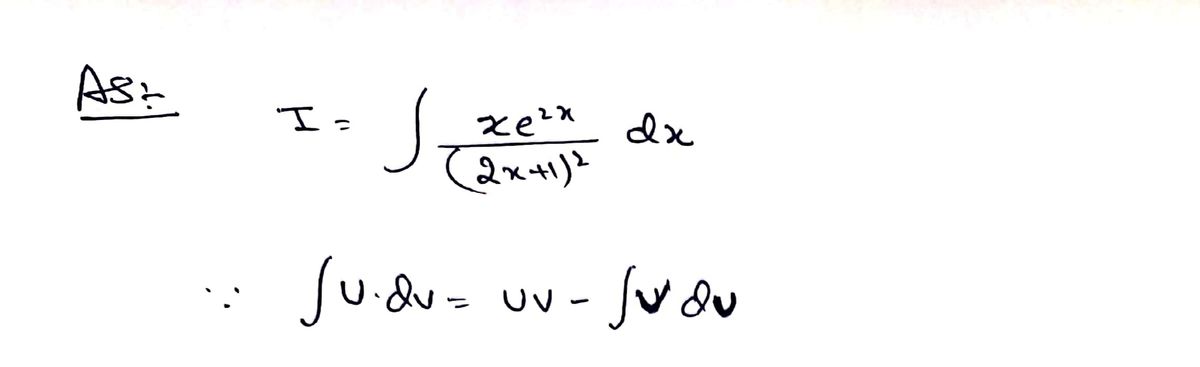 AS:-
I = ∫ xe^{2x} / (2x+1)^2 dx
∵ ∫U·dv = UV - ∫V du